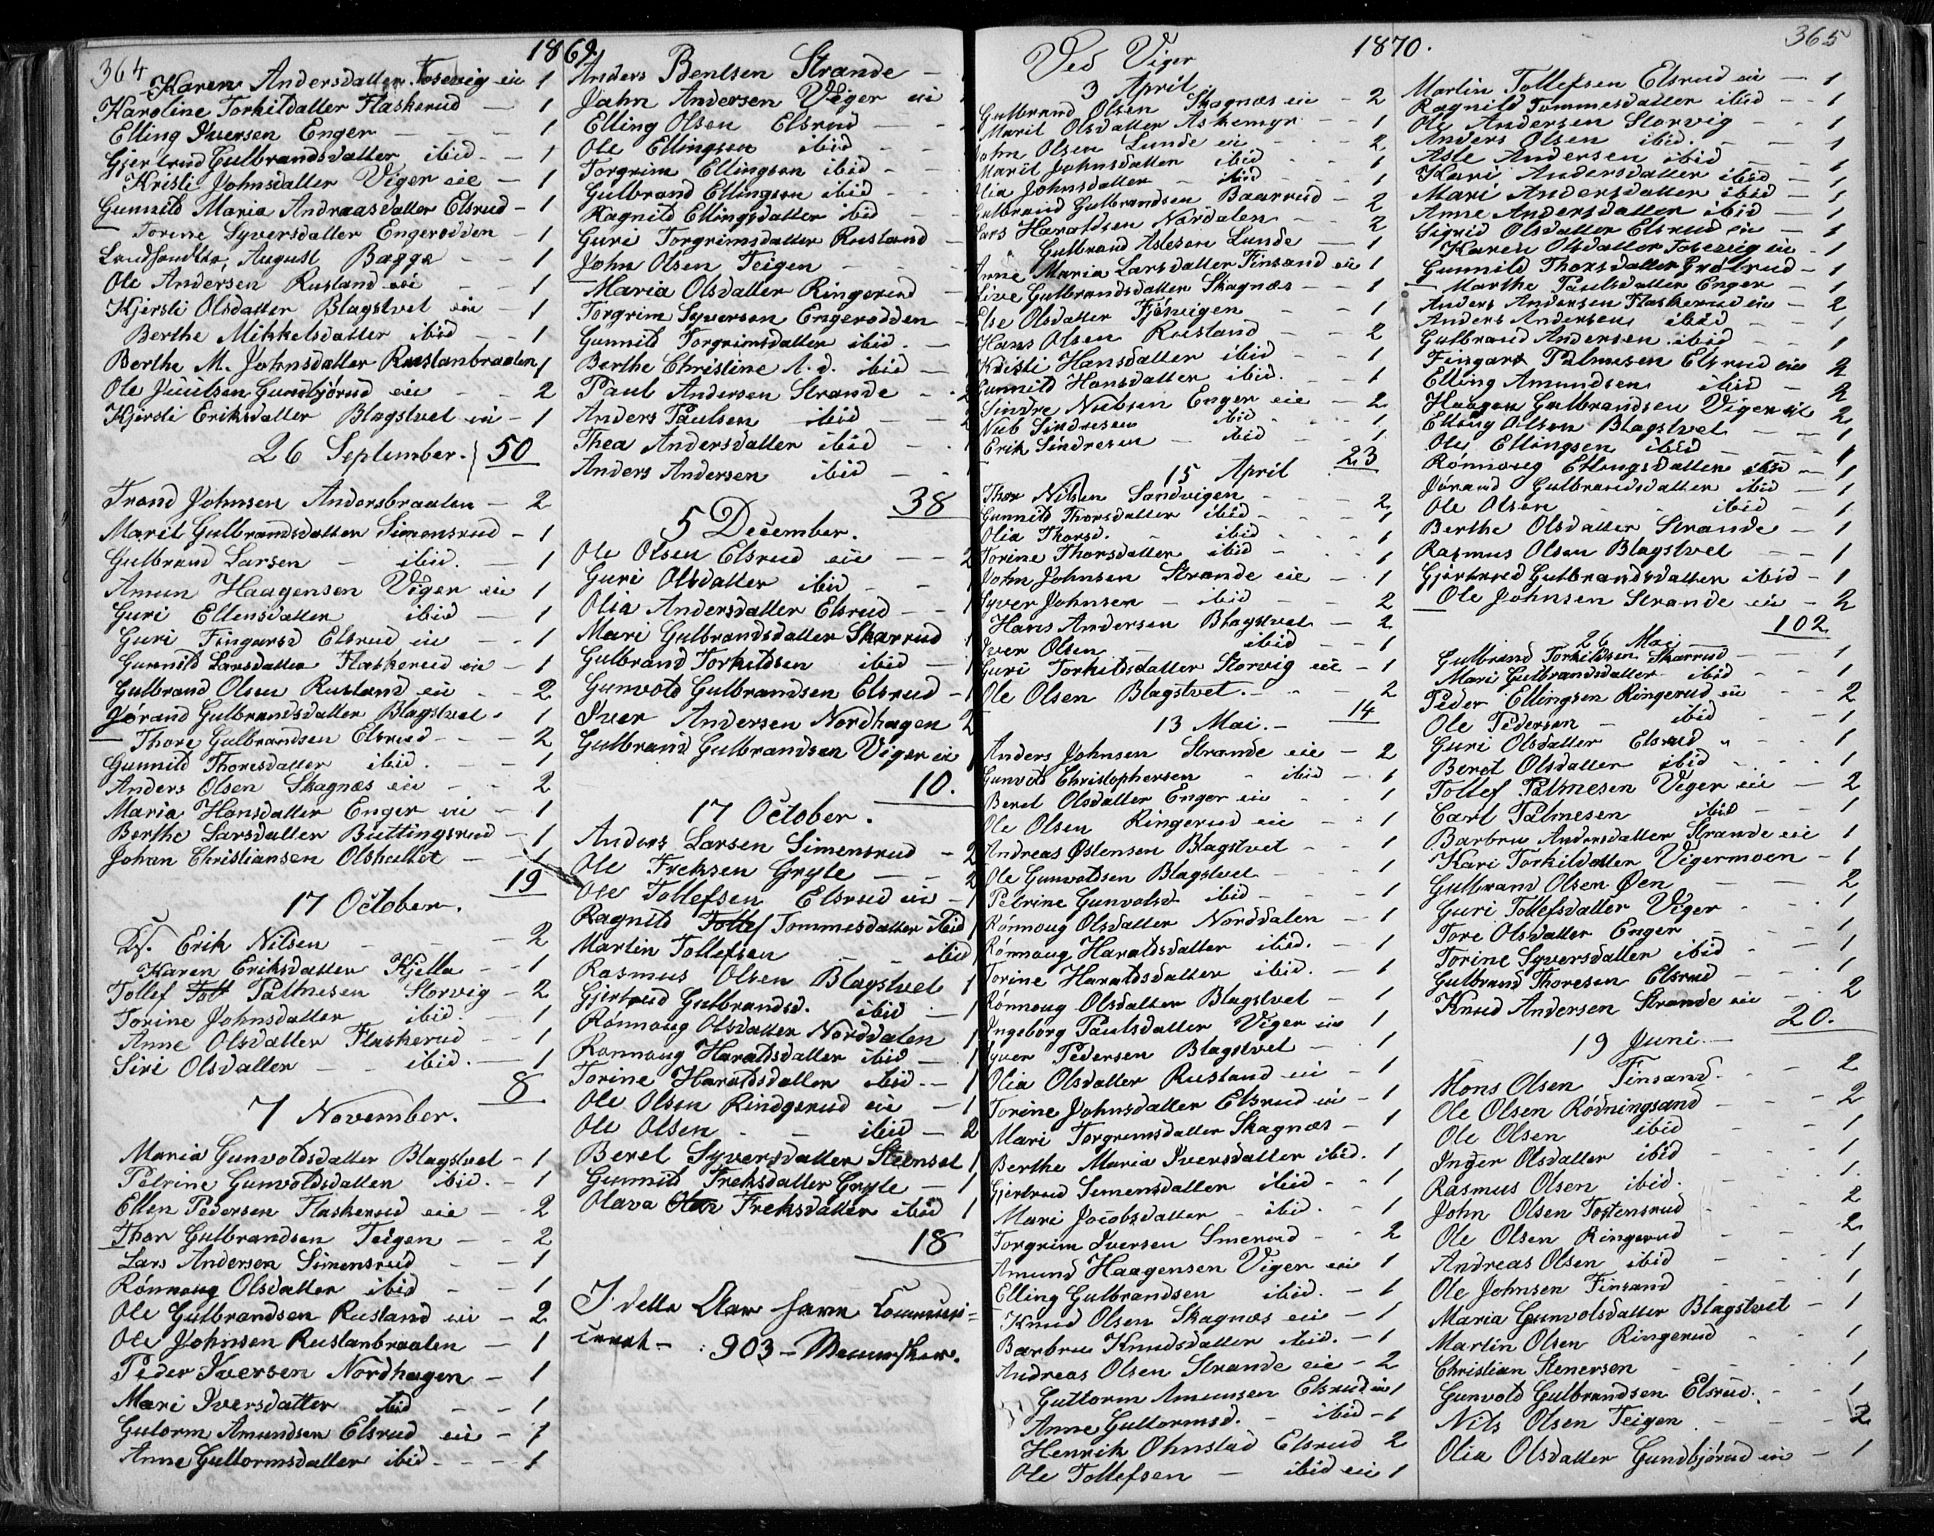 364
1869
Karen Andersdatter Tosevig eie 1
Karoline Torkildatter Flaskerud — 1
Elling Iversen Enger — — — 1
Gjertrud Gulbrandsdatter ibid. — 1
Kristi Johnsdatter Viger eie — 1
Gunnild Maria Andreasdatter Elsrud — 1
Torine Syversdatter Engerodden — 1
Landhandler August Bagge — — 1
Ole Andersen Rusland eie — 1
Kjersti Olsdatter Blagstvet eie 1
Berthe Mikkelsdatter ibid — 1
Berthe M. Johnsdatter Ruslanbraaten 1
Ole Juulsen Gundbjørud eie — 2
Kjersti Eriksdatter Blagstvet eie — 1
26 September. 50
Trond Johnsen Andersbraaten — 2
Marit Gulbrandsdatter Simensrud — 1
Gulbrand Larsen — ibid. — 1
Amun Haagensen Viger eie 1
Guri Ellensdatter ibid — 1
Guri Fingarsd Elsrud eie — 1
Gunnild Larsdatter Flaskerud eie — 1
Gulbrand Olsen Rusland eie — 2
Jørand Gulbrandsdatter Blagstvet — 1
Thore Gulbrandsen Elsrud — — 2
Gunnild Thoresdatter ibid. — — 1
Anders Olsen Skagnæs eie — — 2
Maria Hansdatter Enger eie — 1
Berthe Larsdatter Buttingsrud — 1
Johan Christiansen Olshultet — — 1
19
17 October.
Erik Nilsen — — — 2
Karen Eriksdatter Kjella — — 1
Tollef Palmesen Storvig — 2
Torine Johnsdatter ibid. — 1
Anne Olsdatter Flaskerud — — 1
Siri Olsdatter — — ibid. — 1
8
7 November.
Maria Gunvoldsdatter Blagstvet — 1
Petrine Gunvoldsdatter ibid. — 1
Ellen Pedersen Flaskerud eie — 2
Thor Gulbrandsen Teigen — — 2
Lars Andersen Simensrud — 1
Rønnoug Olsdatter ibid — — 1
Ole Gulbrandsen Rusland eie — 2
Ole Johnsen Ruslanbraaten — 1
Peder Iversen Nordhagen — 1
Mari Iversdatter ibid — — 1
Gutorm Amundsen Elsrud eie — 1
Anne Guttormsdatter ibid. — — 1
Anders Bentsen Strande —
Jahn Andersen Viger eie
Elling Olsen Elsrud — —
Ole Ellingsen ibid — —
Torgrim Ellingsen ibid —
Gulbrand Ellingsen ibid —
Ragnild Ellingsdatter ibid —
Guri Torgrimsdatter Rusland —
John Olsen Teigen — —
Maria Olsdatter Ringerud —
Torgrim Syversen Engerodden —
Gunnild Torgrimsdatter ibid. —
Berthe Christine A. d. ibid —
Paul Andersen Strande —
Anders Paulsen ibid —
Thea Andersdatter ibid —
Anders Andersen ibid —
38
5 December.
Ole Olsen Elsrud eie — 2
Guri Olsdatter ibid — — 1
Olia Andersdatter Elsrud — — 1
Mari Gulbrandsdatter Skarrud 1
Gulbrand Torkildsen ibid — 1
Gunvold Gulbrandsen Elsrud — 1
Iver Andersen Nordhagen 2
Gulbrand Gulbrandsen Viger eie 1
10.
17 October.
Anders Larsen Simensrud — 2
Ole Freksen Gryte — — 2
Ole Tollefsen Elsrud eie — 1
Ragnild Tollef Tommesdatter ibid 1
Martin Tollefsen — — ibid 1
Rasmus Olsen Blagstvet 1
Gjertrud Gulbrandsd. ibid — 1
Rønnoug Olsdatter Norddalen 1
Rønnoug Haraldsdatter ibid — 1
Torine Haraldsdatter ibid. — 1
Ole Olsen Rindgerud eie — 1
Ole Olsen — — ibid — 2
Beret Syversdatter Steenset 1
Gunnild Freksdatter Gryte — 1
Olava Freksdatter ibid 1
18
I dette Aar have Communi=
ceret — 903 — Mennesker.
Ved Viger
1870.
365
3 April
Gulbrand Olsen Skagnæs eie — 2
Marit Olsdatter Askemyr — — 1
John Olsen Lunde eie — — 2
Marit Johnsdatter ibid — 1
Olia Johnsdatter — ibid — — 1
Gulbrand Gulbrandsen Baarrud — 2
Lars Haraldsen Nordalen — 2
Gulbrand Aslesen Lunde — 1
Anne Maria Larsdatter Finsand eie 1
Live Gulbrandsdatter Skagnæs — — 1
Else Olsdatter Fjösvigen — — 1
Hans Olsen Rusland — — 2
Kristi Hansdatter ibid — — 1
Gunnild Hansdatter ibid. — 1
Sindre Nubsen Enger eie — 2
Nub Sindresen ibid — 1
Erik Sindresen — ibid — 1
23
15 April
Thor Nilsen Sandvigen — — 2
Gunnild Thorsdatter ibid — — 1
Olia Thorsd. — ibid — — 1
Torine Thorsdatter ibid — — 1
John Johnsen Strande eie — 1
Syver Johnsen — ibid — — 2
Hans Andersen Blagstvet — 2
Iver Olsen — ibid — 1
Guri Torkildsdatter Storvig eie — 1
Ole Olsen Blagstvet. — — 2
14
13 Mai. —
Anders Johnsen Strande eie — 2
Gunvold Christophersen — ibid — 1
Beret Olsdatter Enger eie — 1
Ole Olsen Ringerud eie — 1
Andreas Østensen Blagstvet — — 1
Ole Gunvoldsen Blagstvet — — 1
Petrine Gunvolsd ibid — — 1
Rønnoug Olsdatter Norddalen — 1
Rønnoug Haraldsdatter ibid. — 1
Torine Haraldsdatter ibid. — 1
Rønnoug Olsdatter Blagstvet — 1
Ingeborg Paulsdatter Viger eie 1
Iver Pedersen Blagstvet — 1
Olia Olsdatter Rusland eie — 1
Torine Johnsdatter Elsrud eie — 1
Mari Torgrimsdatter Skagnæs — 1
Berthe Maria Iversdatter ibid. 1
Gjertrud Simensdatter ibid — — 1
Mari Jacobsdatter — ibid. — 1
Torgrim Iversen Smerud — — 2
Amund Haagensen Viger eie 1
Elling Gulbrandsen ibid. — 1
Knud Olsen Skagnæs eie — 1
Barbru Knudsdatter ibid. — 1
Andreas Olsen Strande eie — 2
Guttorm Amunsen Elsrud eie 1
Anne Guttormsd. — ibid — 1
Henrik Ohnstad Elsrud 2
Ole Tollefsen — ibid eie 1
Martin Tollefsen Elsrud eie — 1
Ragnild Tommesdatter ibid — — 1
Ole Andersen Storvig — — 1
Anders Olsen ibid. — — 1
Asle Andersen ibid — — 1
Kari Andersdatter ibid — — 1
Mari Andersdatter ibid — 1
Anne Andersdatter ibid — — 1
Sigrid Olsdatter Elsrud eie — 1
Karen Olsdatter Tosevig eie — 1
Gunnild Thorsdatter Grøtrud — 1
Marthe Paulsdatter Enger — 1
Anders Andersen Flaskerud eie — 2
Anders Andersen ibid — — 1
Gulbrand Andersen ibid — — 1
Fingar Palmesen Elsrud eie 2
Elling Amundsen ibid — 2
Haagen Gulbrandsen Viger eie 2
Elling Olsen Blagstvet — — 1
Ole Ellingsen ibid — — 1
Rønnoug Ellingsdatter ibid — 1
Jørand Gulbrandsdatter ibid — 1
Ole Olsen — — ibid — 1
Berthe Olsdatter Strande — 1
Rasmus Olsen Blagstvet — — 1
Gjertrud Gulbrandsdatter ibid — 1
Ole Johnsen Strande eie — 2
102
26 Mai
Gulbrand Torkildsen Skarrud — — 1
Mari Gulbrandsdatter ibid — — 1
Peder Ellingsen Ringerud eie — 2
Ole Pedersen — ibid — — 1
Guri Olsdatter Elsrud — — 1
Beret Olsdatter ibid — — 1
Tollef Palmesen Viger eie — 2
Carl Palmesen ibid — — 1
Barbru Andersdatter Strande eie 1
Kari Torkildatter Vigermoen — 1
Gulbrand Olsen Øen — — 2
Guri Tollefsdatter Viger — — 1
Tore Olsdatter Enger — — 1
Torine Syversdatter ibid — — 1
Gulbrand Thoresen Elsrud — — 2
Knud Andersen Strande eie — 2
20.
19 Juni. —
Mons Olsen Finsand. — — 2
Ole Olsen Rödningsand — — 2
Ole Olsen ibid — — 1
Inger Olsdatter ibid — — 1
Rasmus Olsen ibid. — — 1
John Olsen Tostensrud — — 2
Ole Olsen Ringerud — — 2
Andreas Olsen ibid — — 1
Ole Johnsen Finsand — — 1
Maria Gunvolsdatter Blagstvet — 1
Martin Olsen Ringerud — — 1
Christian Stenersen — — — 1
Gunvold Gulbrandsen Elsrud. — — 1
Nils Olsen Teigen — — — 2
Olia Olsdatter Gundbjørud eie — 1